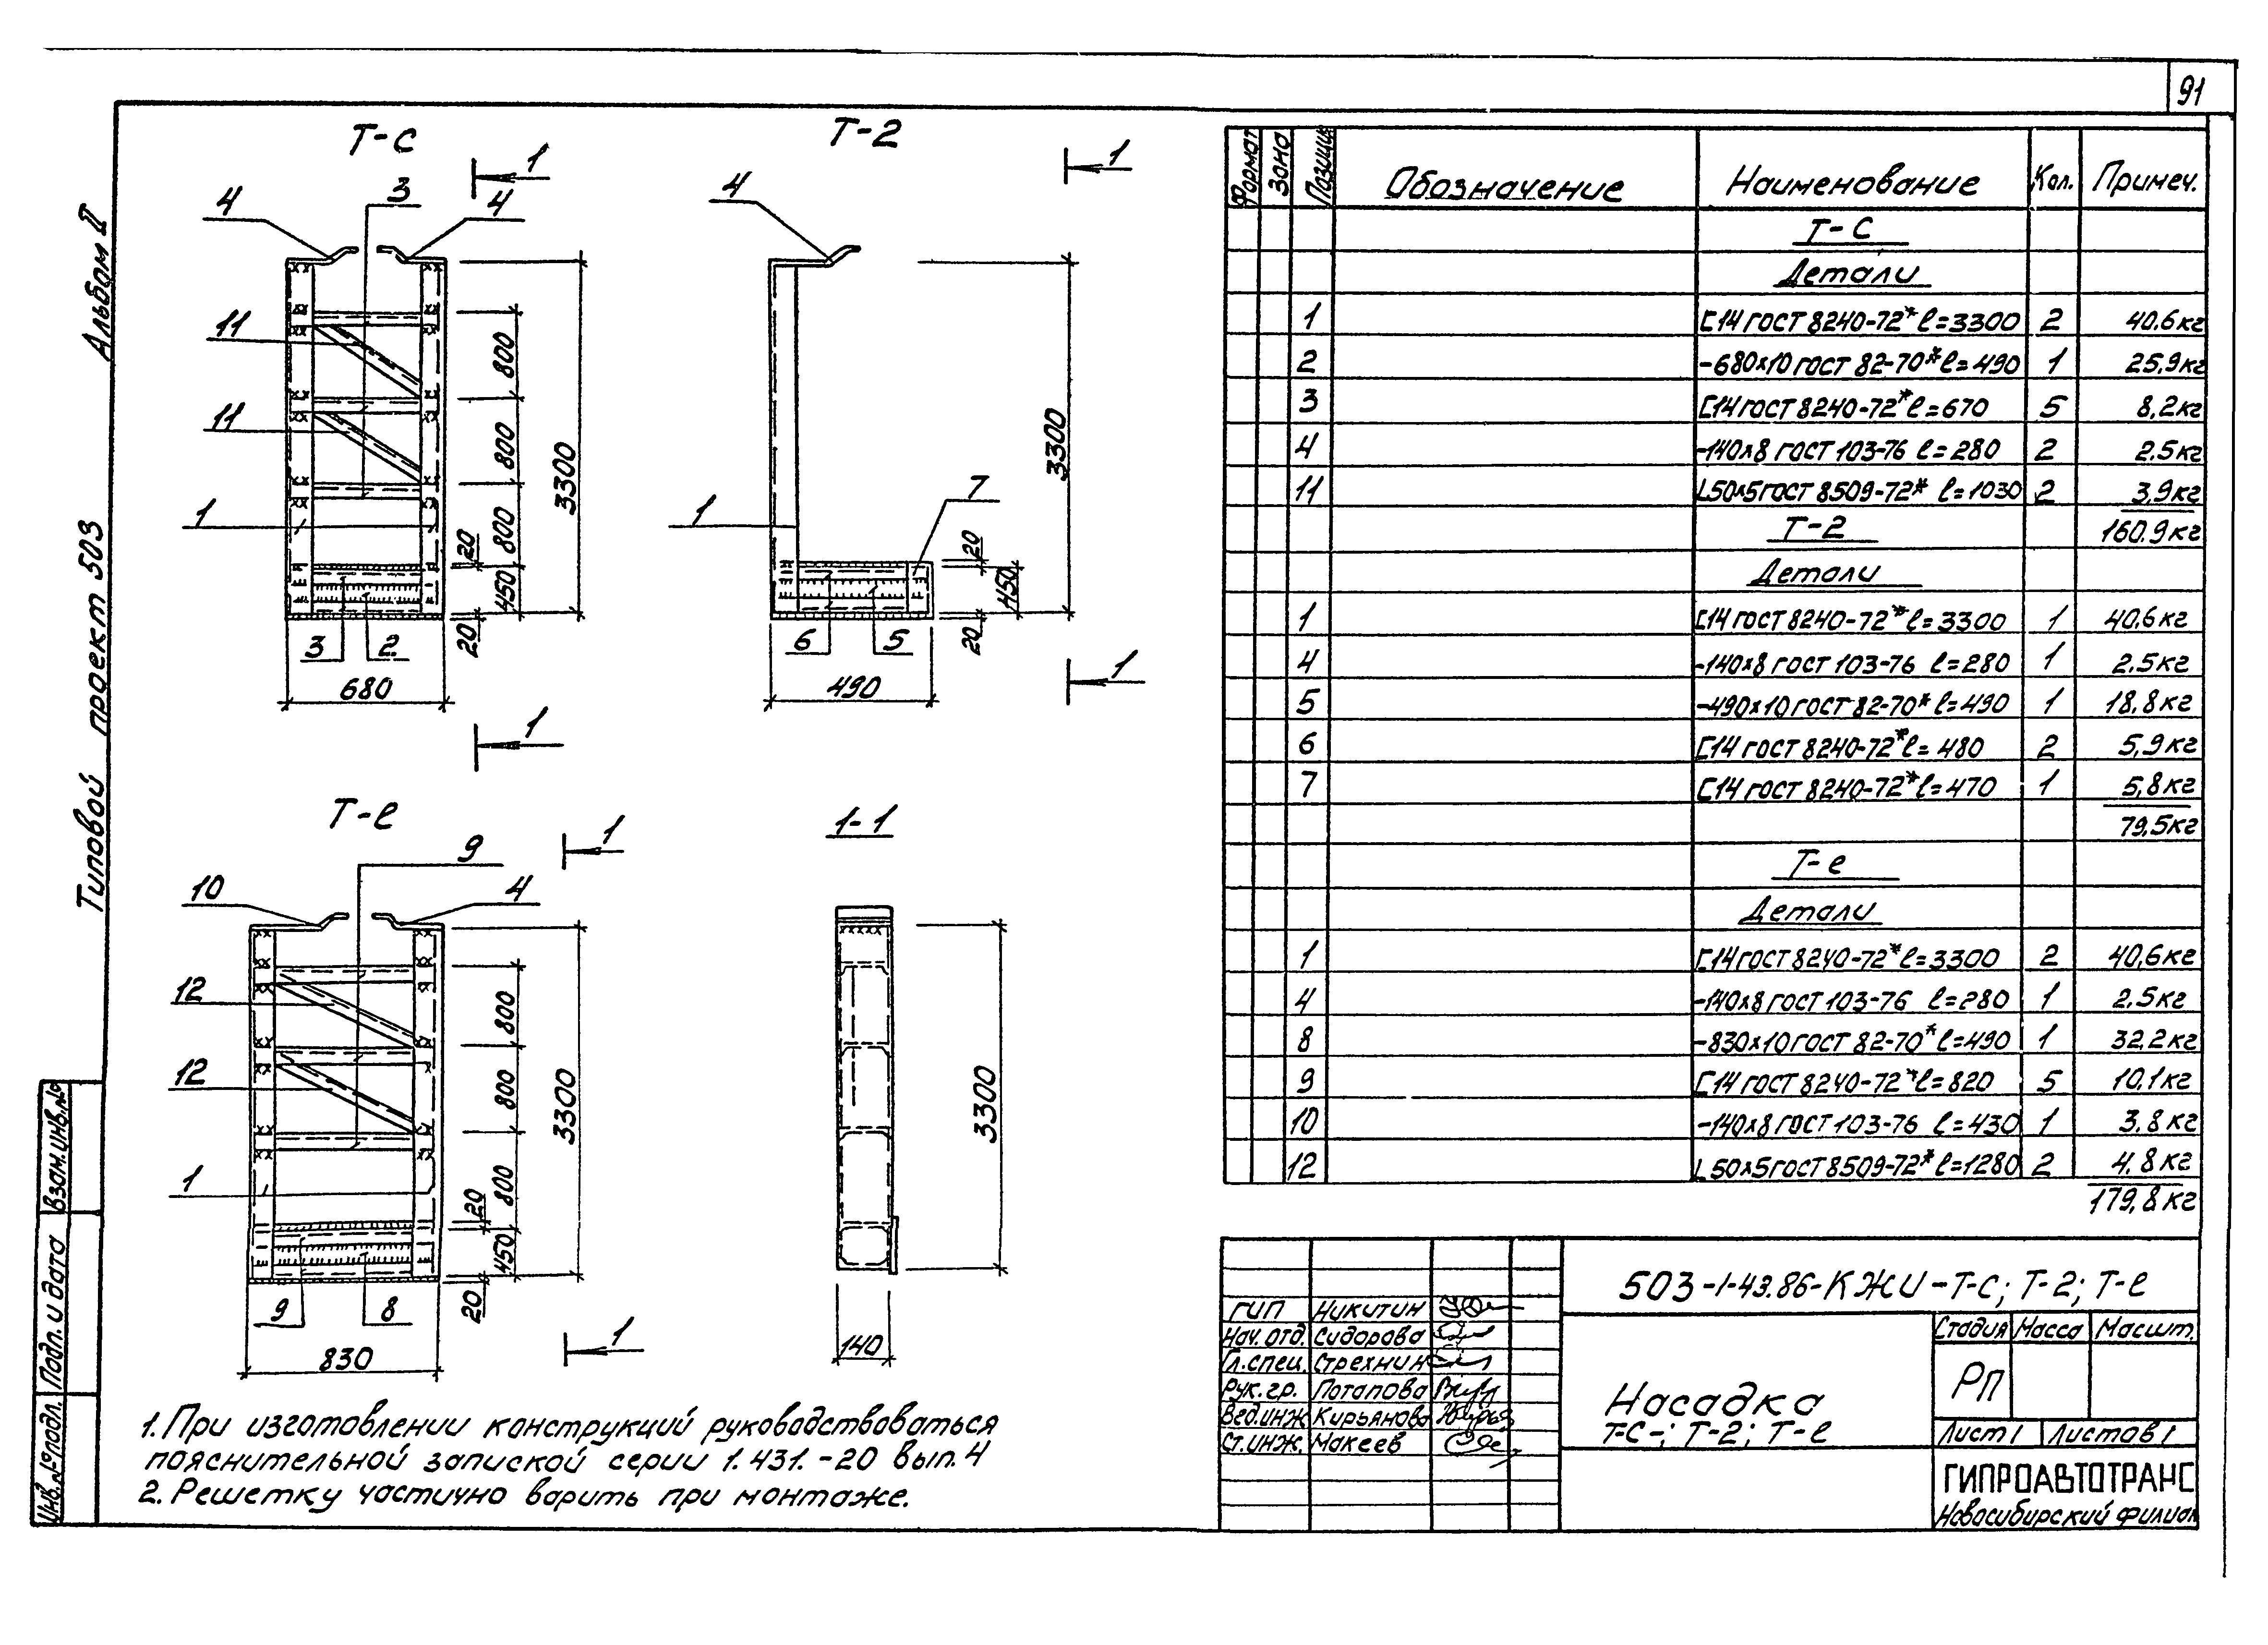 91
Альбом II
Типовой проект 503
Взам.инв.№
Подп. и дата
Инв.№ подл.
Т-с
1
4
3
4
11
11
1
800
800
800
20
450
20
3300
3
2
680
1
Т-2
1
4
1
7
20
450
20
3300
6
5
490
1
Т-е
1
9
10
4
12
12
1
800
800
800
20
450
20
3300
9
8
830
1
1-1
3300
140
1. При изготовлении конструкций руководствоваться
пояснительной запиской серии 1.431.-20 вып. 4
2. Решетку частично варить при монтаже.
Формат Зона Позиция Обозначение Наименование Кол. Примеч.
Т-С
Детали
1 [14 ГОСТ 8240-72* ℓ=3300 2 40.6кг
2 -680х10 ГОСТ 82-70* ℓ=490 1 25,9кг
3 [14 ГОСТ 8240-72* ℓ=670 5 8,2кг
4 -140х8 ГОСТ 103-76 ℓ=280 2 2.5кг
11 L50х5 ГОСТ 8509-72* ℓ=1030 2 3,9кг
Т-2 160.9кг
Детали
1 [14 ГОСТ 8240-72* ℓ=3300 1 40,6кг
4 -140х8 ГОСТ 103-76 ℓ=280 1 2,5кг
5 -490х10 ГОСТ 82-70* ℓ=490 1 18,8кг
6 [14 ГОСТ 8240-72* ℓ=480 2 5,9кг
7 [14 ГОСТ 8240-72* ℓ=470 1 5,8кг
79,5кг
Т-е
Детали
1 [14 ГОСТ 8240-72* ℓ=3300 2 40,6кг
4 -140х8 ГОСТ 103-76 ℓ=280 1 2,5кг
8 -830х10 ГОСТ 82-70* ℓ=490 1 32,2кг
9 [14 ГОСТ 8240-72* ℓ=820 5 10,1кг
10 -140х8 ГОСТ 103-76 ℓ=430 1 3,8кг
12 L50х5 ГОСТ 8509-72* ℓ=1280 2 4.8кг
179,8кг
503-1-43.86-КЖИ-Т-с; Т-2; Т-е
ГИП Никитин
Нач. отд. Сидорова
Гл. спец. Стрехнин
Рук. гр. Потапова
Вед.инж Кирьянова
Ст.инж. Макеев
Насадка
Т-с-; Т-2; Т-е
Стадия Масса Масшт.
РП
Лист 1 Листов 1
ГИПРОАВТОТРАНС
Новосибирский филиал